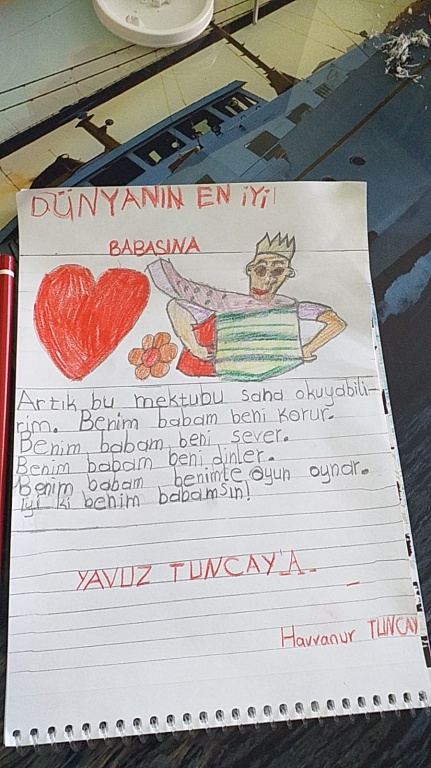 DÜNYANIN EN iYİ
BABASINA
Artık bu mektubu sana okuyabili-
rim. Benim babam beni korur.
Benim babam beni sever.
Benim babam beni dinler.
Benim babam benimle oyun oynar.
iyi ki benim babamsın!
YAVUZ TUNCAY'A
Havvanur TUNCAY